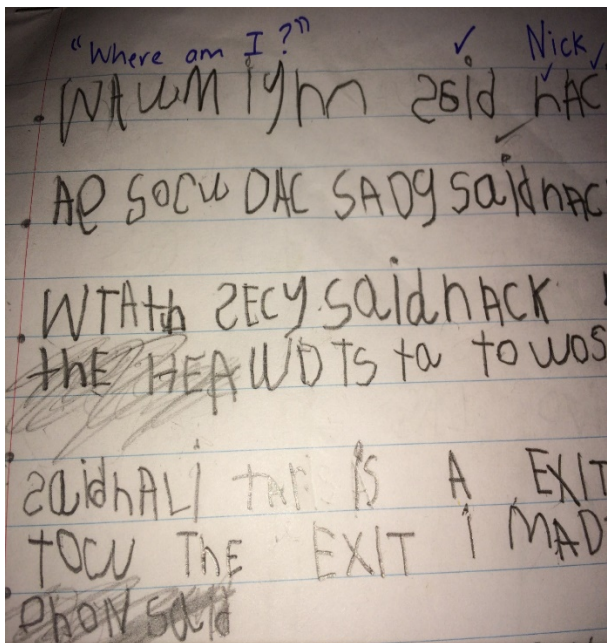 "Where am I?" Nick
WAUWM iyM said nAC
AP SOCW DAC SADY said nAC
WTAth SECY said nACK
thE HEAWDTS ta towos
said nALi tAr iS A EXIT
TOCW ThE EXIT i MAD
PhON said